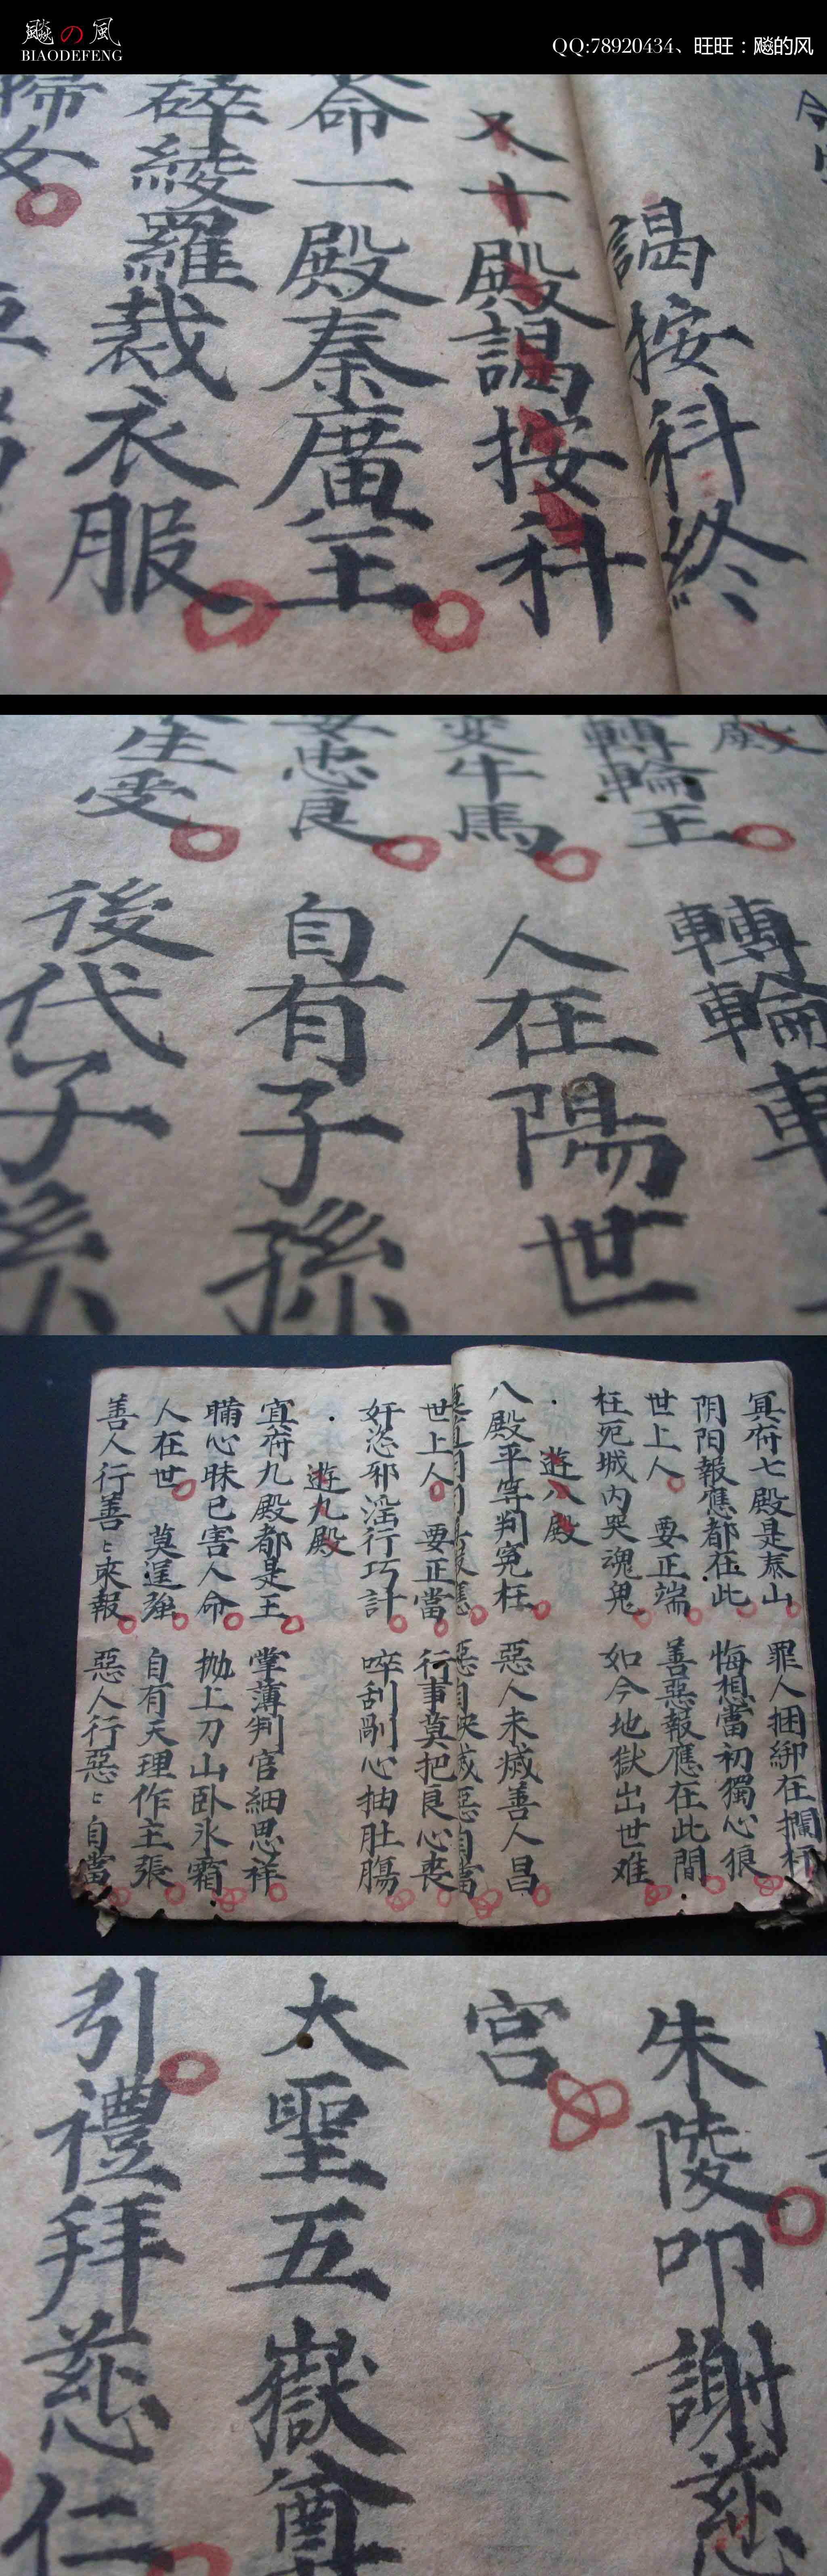 飚の風
BIAODEFENG
QQ:78920434、旺旺：飚的风
謁按科終
又十殿謁按科
命一殿秦廣王
碎綾羅裁衣服
婦女
殿
轉輪王 轉輪車
变牛馬 人在陽世
忠良 自有子孫
生受 後代子孫
冥府七殿是泰山 罪人捆綁在攔杆
阴阳報應都在此 悔想當初獨心狼
世上人 要正端 善惡報應在此間
枉死城内哭魂鬼 如今地獄出世难
遊八殿
八殿平等判寃枉 惡人未烕善人昌
世上人 要正當 行事莫把良心丧
奸恣邪淫行巧計 啐刮剮心抽肚腸
遊九殿
冥府九殿都是王 掌薄判官細思祥
瞞心昧己害人命 抛上刀山卧氷霜
人在世 莫逞強 自有天理作主張
善人行善〻來報 惡人行惡〻自當
朱陵叩謝慈
宫
大聖五嶽尊
引禮拜慈仁